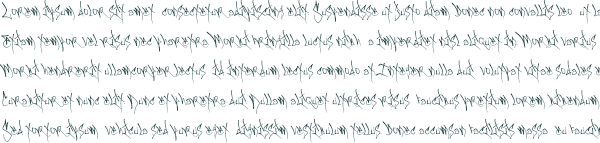 Lorem ipsum dolor sit amet consectetur adipiscing elit Suspendisse ut justo diam Donec non convallis leo ut
Etiam tempor vel risus nec pharetra Morbi fringilla luctus nibh a imperdiet nisl aliquet in Morbi
Morbi hendrerit ullamcorper lectus id interdum lectus commodo at Integer nulla dui volutpat vitae sodales
Curabitur nunc elit Nunc et Pharetra dui Nullam aliquet ultricies risus faucibus pretium lorem bibendum
Sed tortor ipsum vehicula sed purus eget dignissim vestibulum tellus Donec accumsan facilisis massa eu faucibus